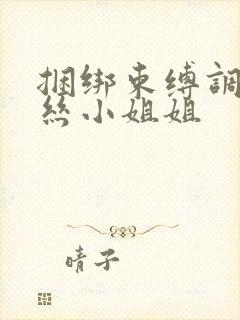 捆绑束缚調
丝小姐姐
晴子